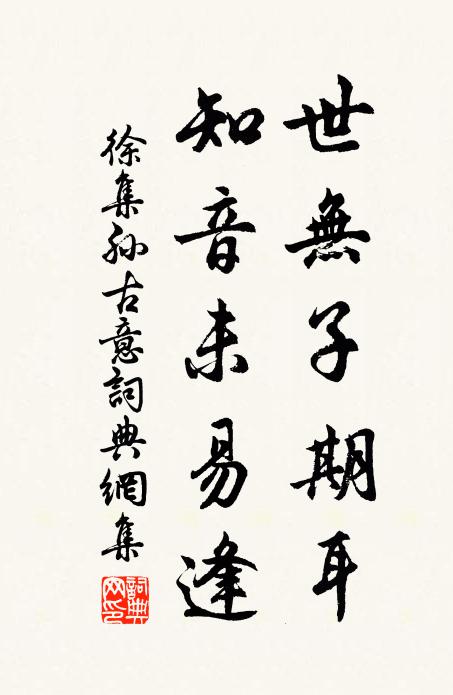 世無子期耳
知音未易逢
徐集孫古意詞典網集
詞典网印